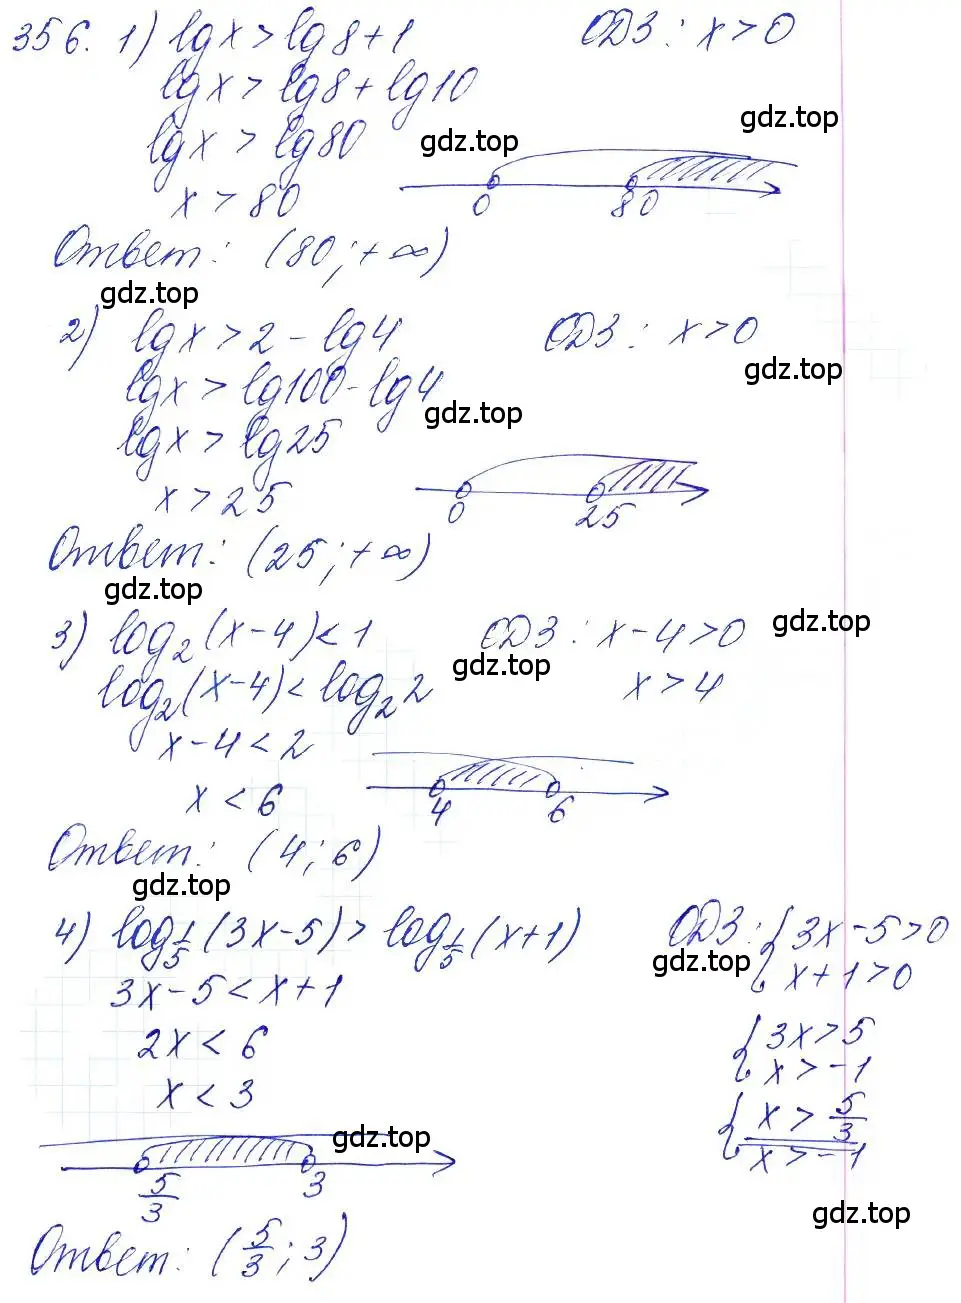 356. 1) lg x > lg 8 + 1 ОДЗ: x > 0
lg x > lg 8 + lg 10
gdz.top
lg x > lg 80
gdz.top
x > 80
0 80
Ответ: (80; +∞)
gdz.top
2) lg x > 2 - lg 4 ОДЗ: x > 0
gdz.top
lg x > lg 100 - lg 4
gdz.top
lg x > lg 25
x > 25
0 25
Ответ: (25; +∞)
gdz.top
3) log₂(x-4) < 1 ОДЗ: x-4 > 0
gdz.top
gdz.top
log₂(x-4) < log₂2 x > 4
x-4 < 2
x < 6
4 6
Ответ: (4; 6)
gdz.top
4) log_{1/5}(3x-5) > log_{1/5}(x+1) ОДЗ: { 3x-5 > 0
gdz.top
x+1 > 0
3x-5 < x+1
2x < 6
{ 3x > 5
x > -1
x < 3
{ x > 5/3
x > -1
gdz.top
5/3 3
gdz.top
Ответ: (5/3; 3)